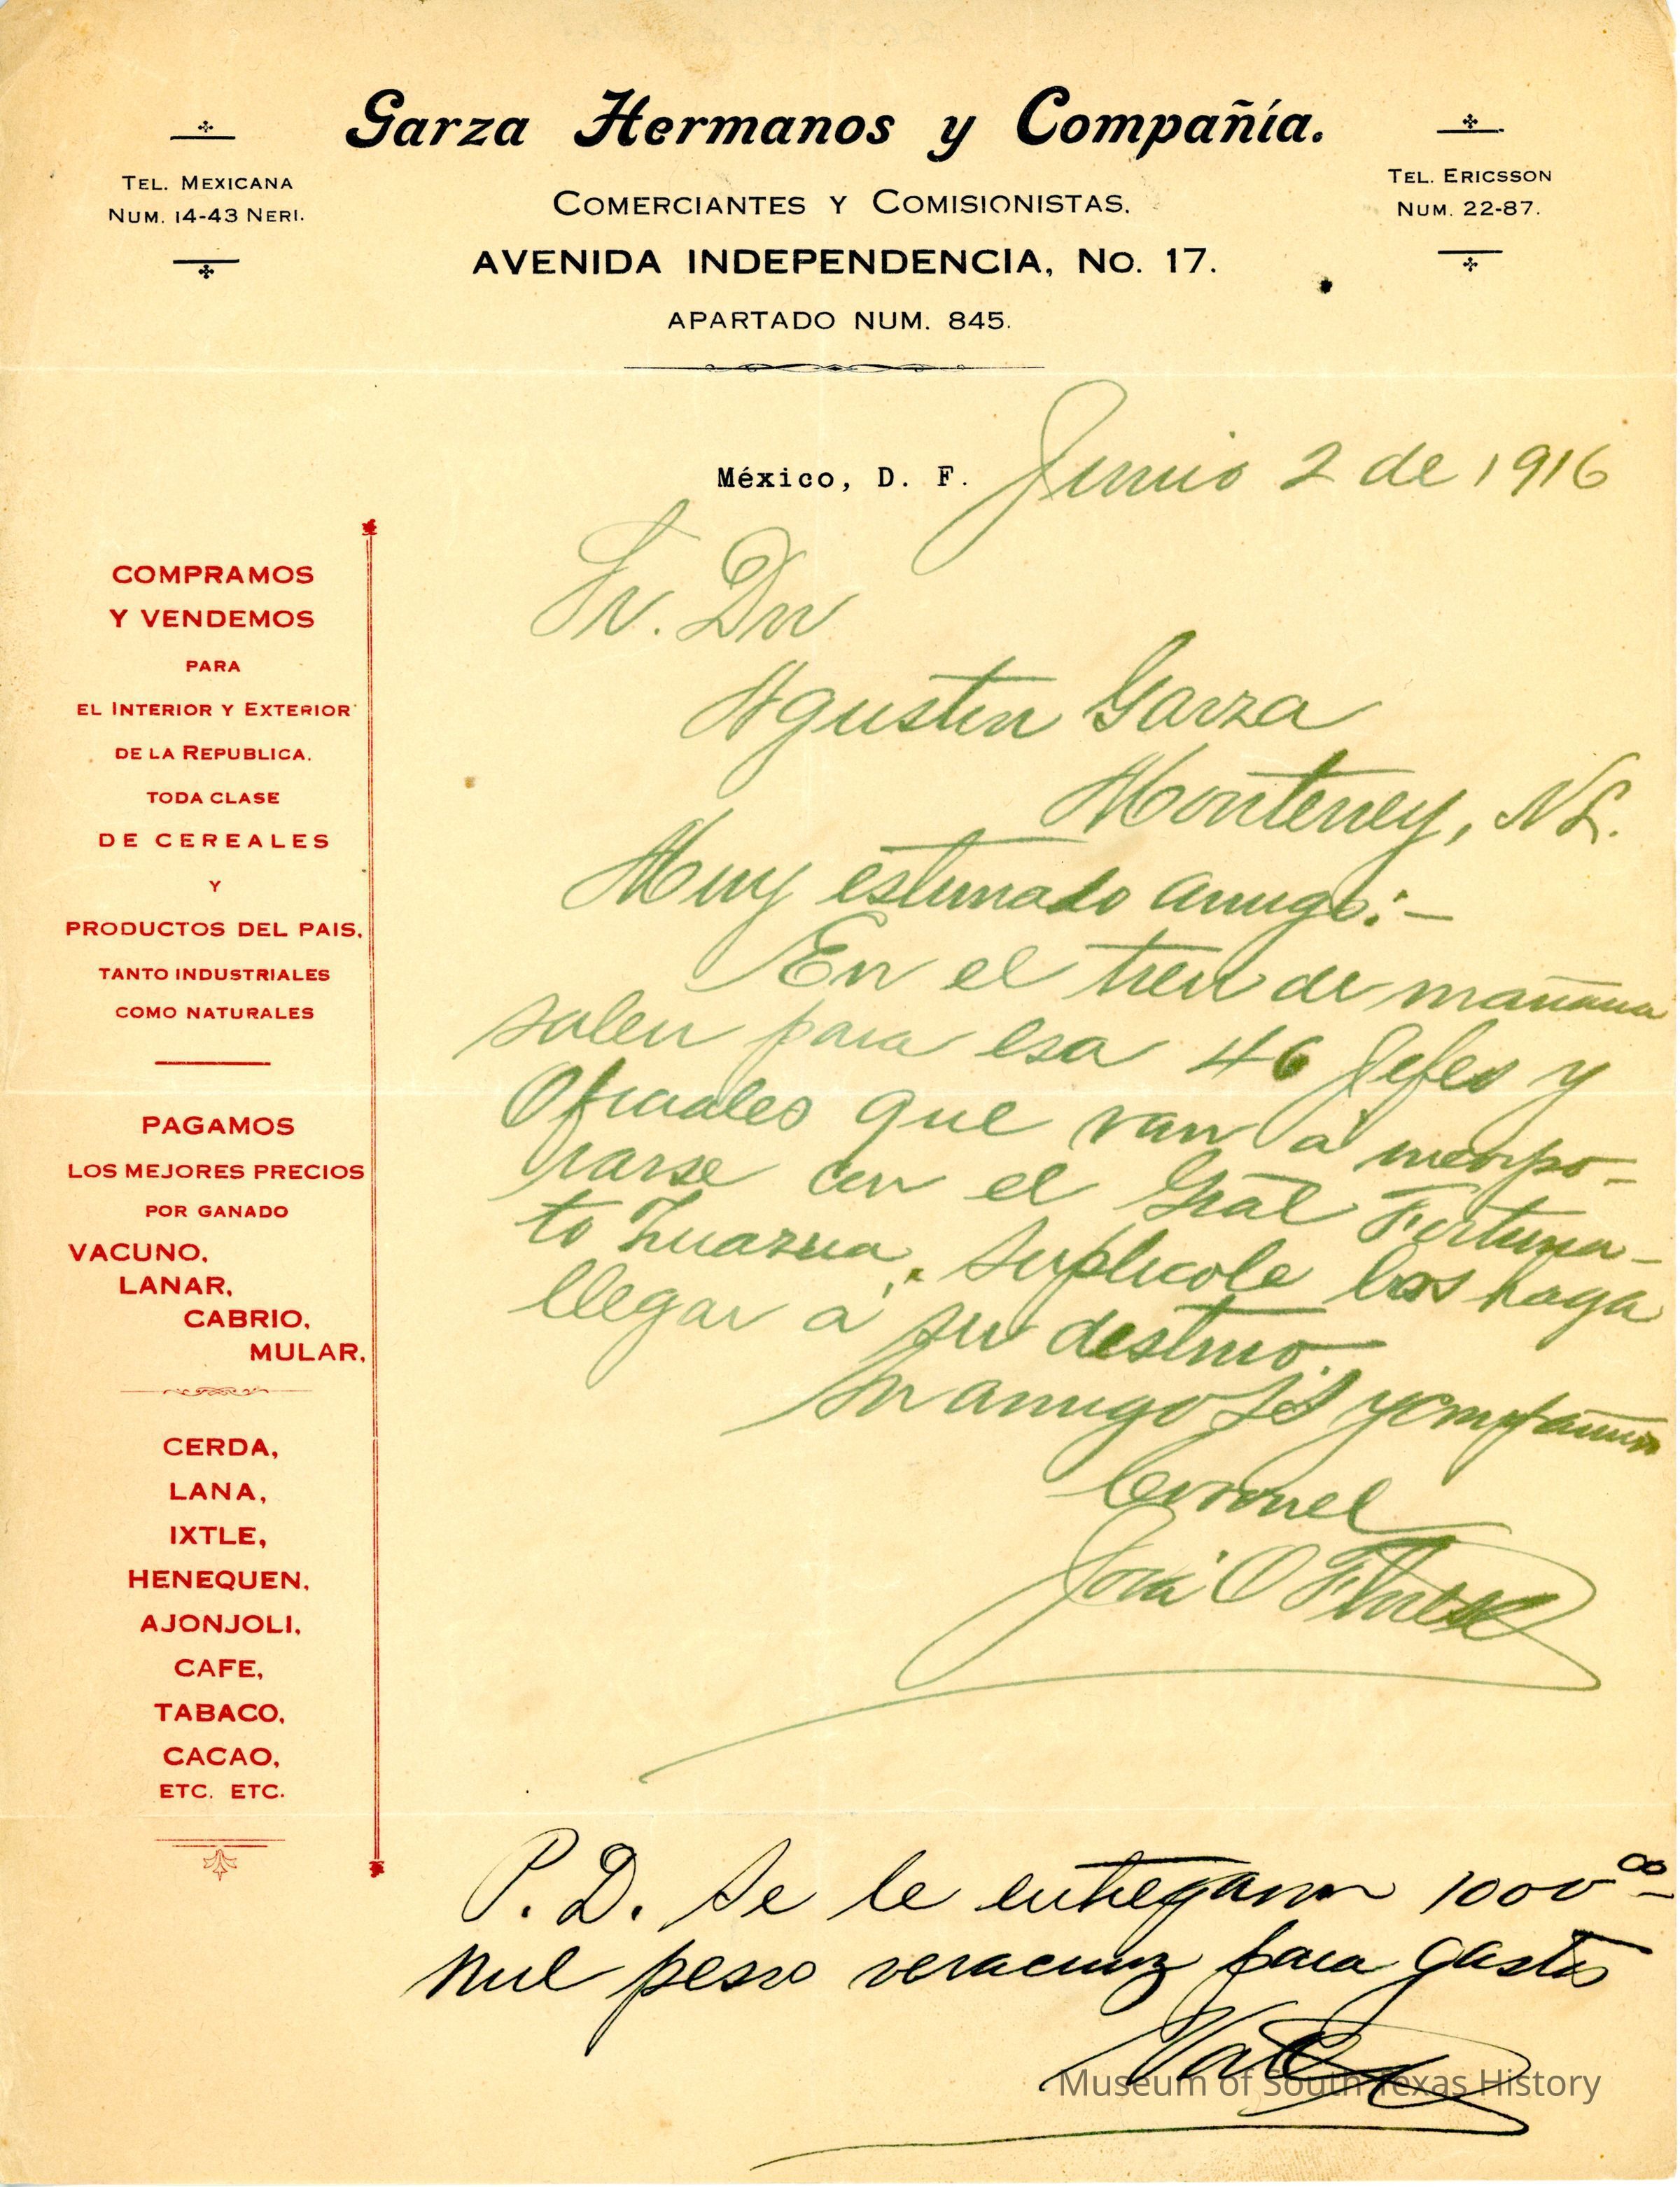 Garza Hermanos y Compañía.
TEL. MEXICANA
NUM. 14-43 NERI.
COMERCIANTES Y COMISIONISTAS.
TEL. ERICSSON
NUM. 22-87.
AVENIDA INDEPENDENCIA, No. 17.
APARTADO NUM. 845.
México, D. F. Junio 2 de 1916
COMPRAMOS
Y VENDEMOS
PARA
EL INTERIOR Y EXTERIOR
DE LA REPUBLICA.
TODA CLASE
DE CEREALES
Y
PRODUCTOS DEL PAIS,
TANTO INDUSTRIALES
COMO NATURALES
PAGAMOS
LOS MEJORES PRECIOS
POR GANADO
VACUNO,
LANAR,
CABRIO,
MULAR,
CERDA,
LANA,
IXTLE,
HENEQUEN,
AJONJOLI,
CAFE,
TABACO,
CACAO,
ETC. ETC.
Sr. Dn
Agustin Garza
Monterrey, NL.
Muy estimado amigo:—
En el tren de mañana
salen para esa 46 Jefes y
Oficiales que van á incorpo-
rarse con el Gral Fortuna-
to Zuazua. Suplicole los haga
llegar á su destino.
Su amigo SS y compañero
Coronel
José O Flores
P.D. Se le entregaron 1000 00
mil pesos veracruz para gastos
Vale
Museum of South Texas History